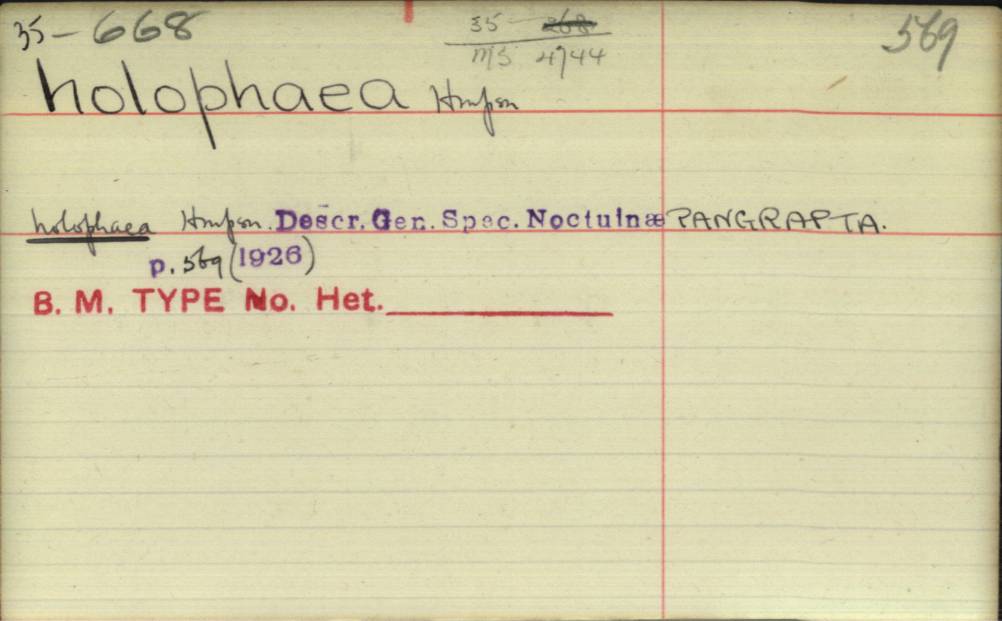 35-668
35 268
MS 4744
569
holophaea Hmpsn
holophaea Hmpsn. Descr. Gen. Spec. Noctuinæ PANGRAPTA.
p. 569 (1926)
B. M. TYPE No. Het.